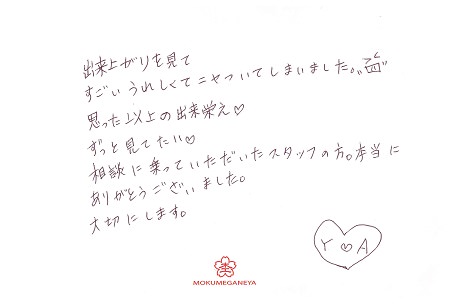 出来上がりを見て
すごいうれしくてニヤついてしまいました。
思った以上の出来栄え♡
ずっと見てたい♡
相談に乗っていただいたスタッフの方。本当に
ありがとうございました。
大切にします。
Y ♡ A
MOKUMEGANEYA